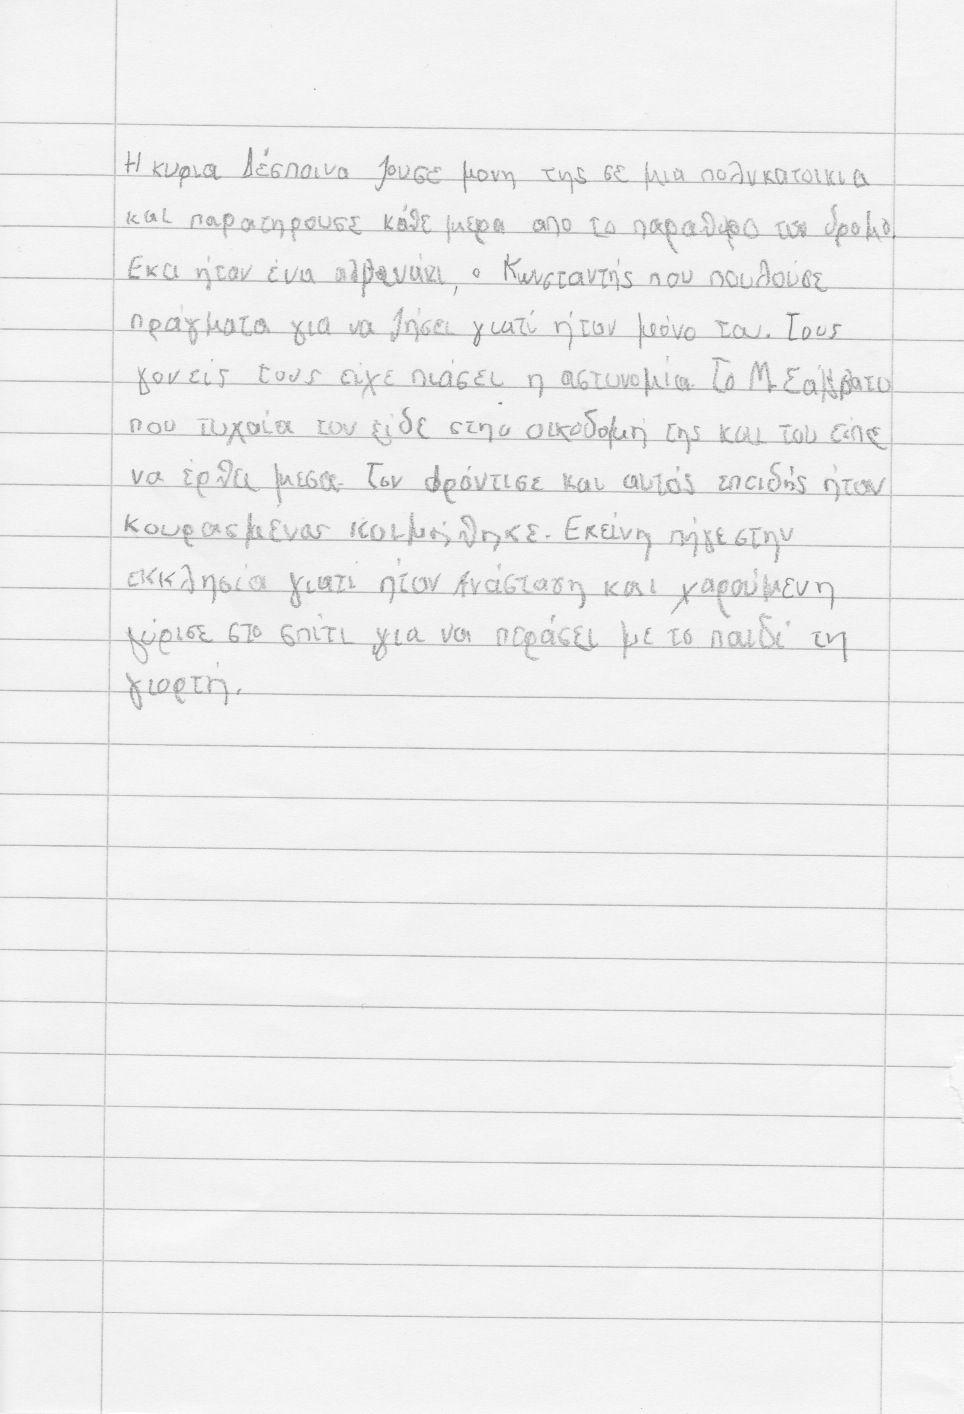 Η κυρια Δέσποινα ζουσε μονη της σε μια πολυκατοικια
και παρατηρουσε κάθε μερα απο το παραθυρο τον δρομο.
Εκει ήταν ένα αλβανάκι, ο Κωνσταντής που πουλούσε
πράγματα για να ζήσει γιατί ήταν μόνο του. Τους
γονείς τους είχε πιάσει η αστυνομία. Το Μ. Σάββατο
που τυχαία τον είδε στην οικοδομή της και του είπε
να έρθει μεσα. Τον φρόντισε και αυτός επειδής ήταν
κουρασμένος κοιμήθηκε. Εκείνη πήγε στην
εκκλησία γιατί ήταν Ανάσταση και χαρούμενη
γύρισε στο σπίτι για να περάσει με το παιδί τη
γιορτή.